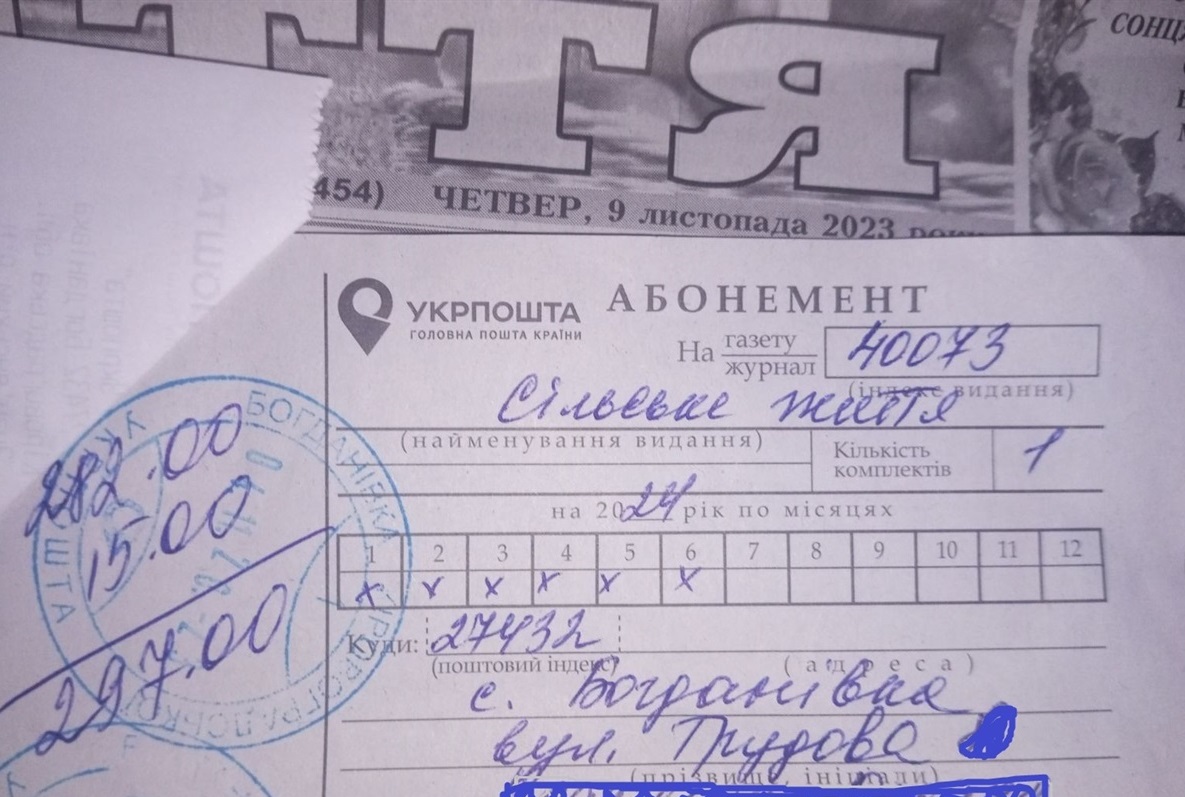 ТТЯ
СОНЦ
454) ЧЕТВЕР, 9 листопада 2023 року
УКРПОШТА
ГОЛОВНА ПОШТА КРАЇНИ
АБОНЕМЕНТ
На газету
журнал
40073
(індекс видання)
Сільське життя
(найменування видання)
Кількість
комплектів
1
на 2024 рік по місяцях
1 2 3 4 5 6 7 8 9 10 11 12
х х х х х х
Куди: 27432
(поштовий індекс) (адреса)
с. Богданівка
вул. Трудова
(прізвище, ініціали)
БОГДАНІВКА
282.00
15.00
297.00